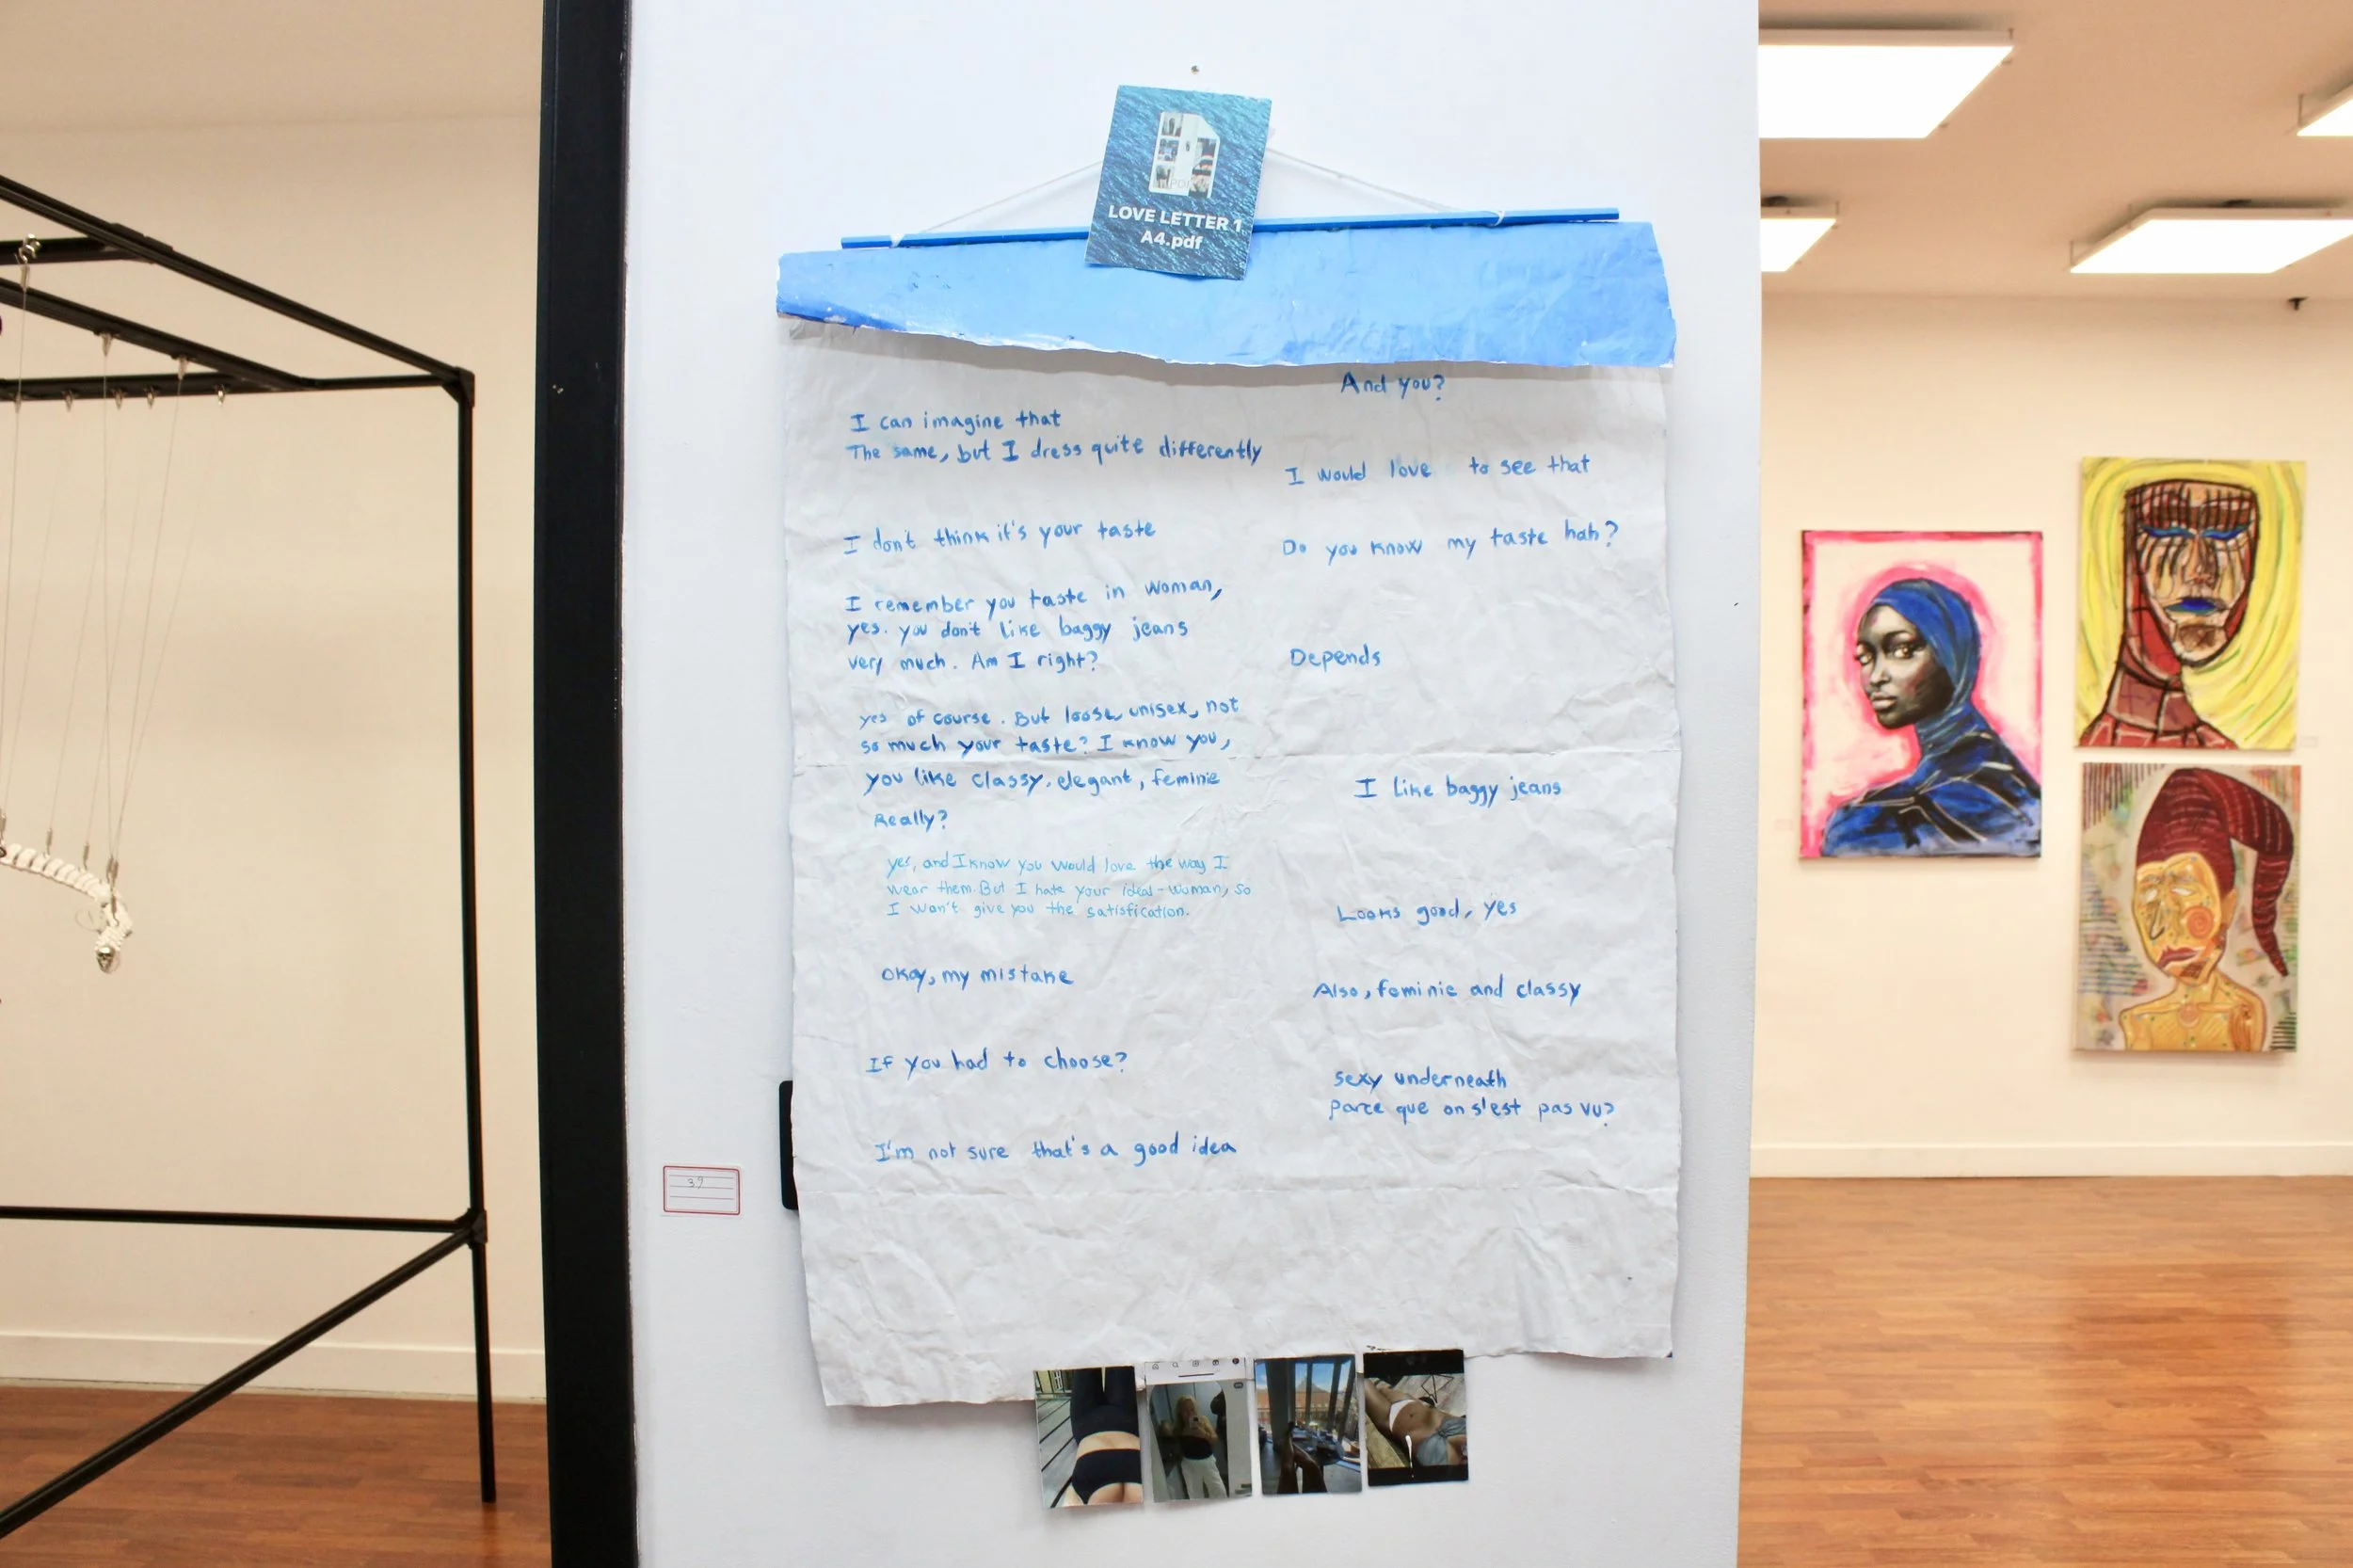 LOVE LETTER 1
A4.pdf
And you?
I can imagine that
The same, but I dress quite differently
I would love to see that
I don't think it's your taste
Do you know my taste hah?
I remember you taste in woman,
yes. you don't like baggy jeans
very much. Am I right?
Depends
yes of course. But loose, unisex, not
so much your taste? I know you,
you like classy, elegant, feminie
I like baggy jeans
Really?
yes, and I know you would love the way I
wear them. But I hate your ideal-woman, so
I won't give you the satisfication.
Looks good, yes
Okay, my mistake
Also, feminie and classy
If you had to choose?
Sexy underneath
parce que on s'est pas vu?
I'm not sure that's a good idea
39